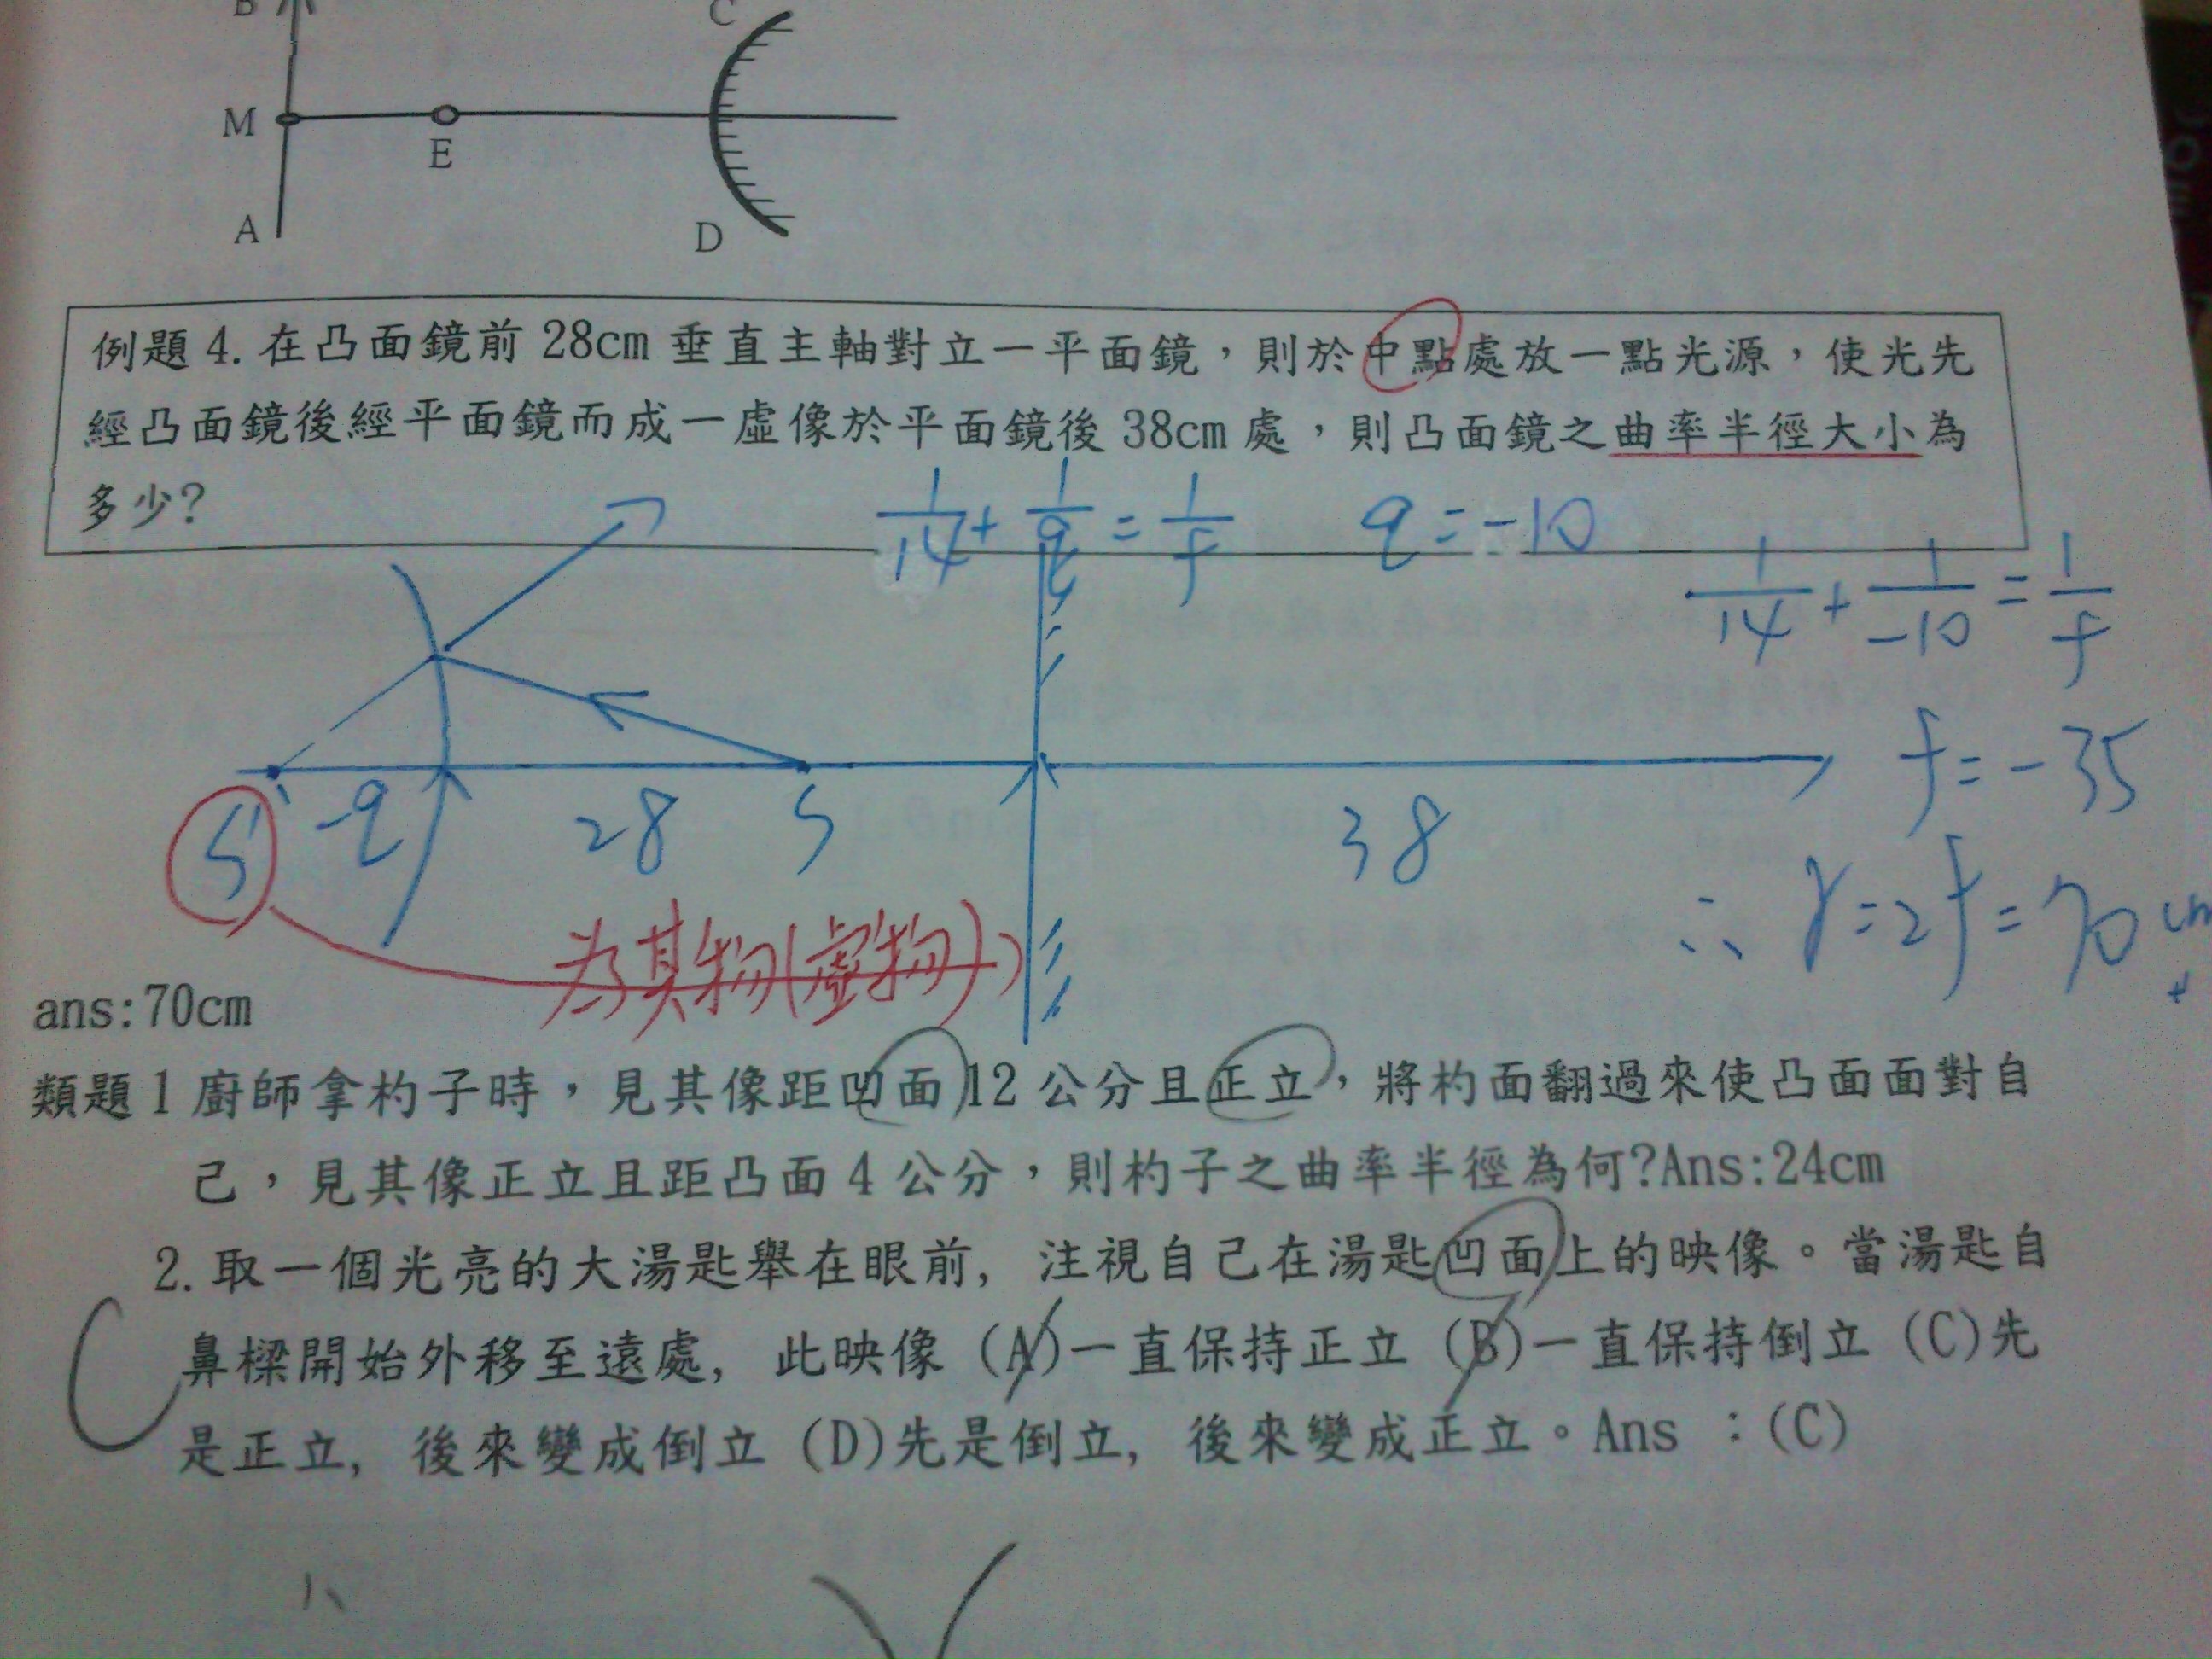 B
C
M
E
A
D
例題 4. 在凸面鏡前 28cm 垂直主軸對立一平面鏡，則於中點處放一點光源，使光先
經凸面鏡後經平面鏡而成一虛像於平面鏡後 38cm 處，則凸面鏡之曲率半徑大小為
多少?
1/14 + 1/q = 1/f
q = -10
1/14 + 1/-10 = 1/f
f = -35
S' -q 28 S 38
∴ r = 2f = 70 cm
為其物(虛物)
ans:70cm
類題 1 廚師拿杓子時，見其像距凹面 12 公分且正立，將杓面翻過來使凸面面對自
己，見其像正立且距凸面 4 公分，則杓子之曲率半徑為何?Ans:24cm
2. 取一個光亮的大湯匙舉在眼前, 注視自己在湯匙凹面上的映像。當湯匙自
鼻樑開始外移至遠處, 此映像 (A)一直保持正立 (B)一直保持倒立 (C)先
C
是正立, 後來變成倒立 (D)先是倒立, 後來變成正立。Ans ：(C)